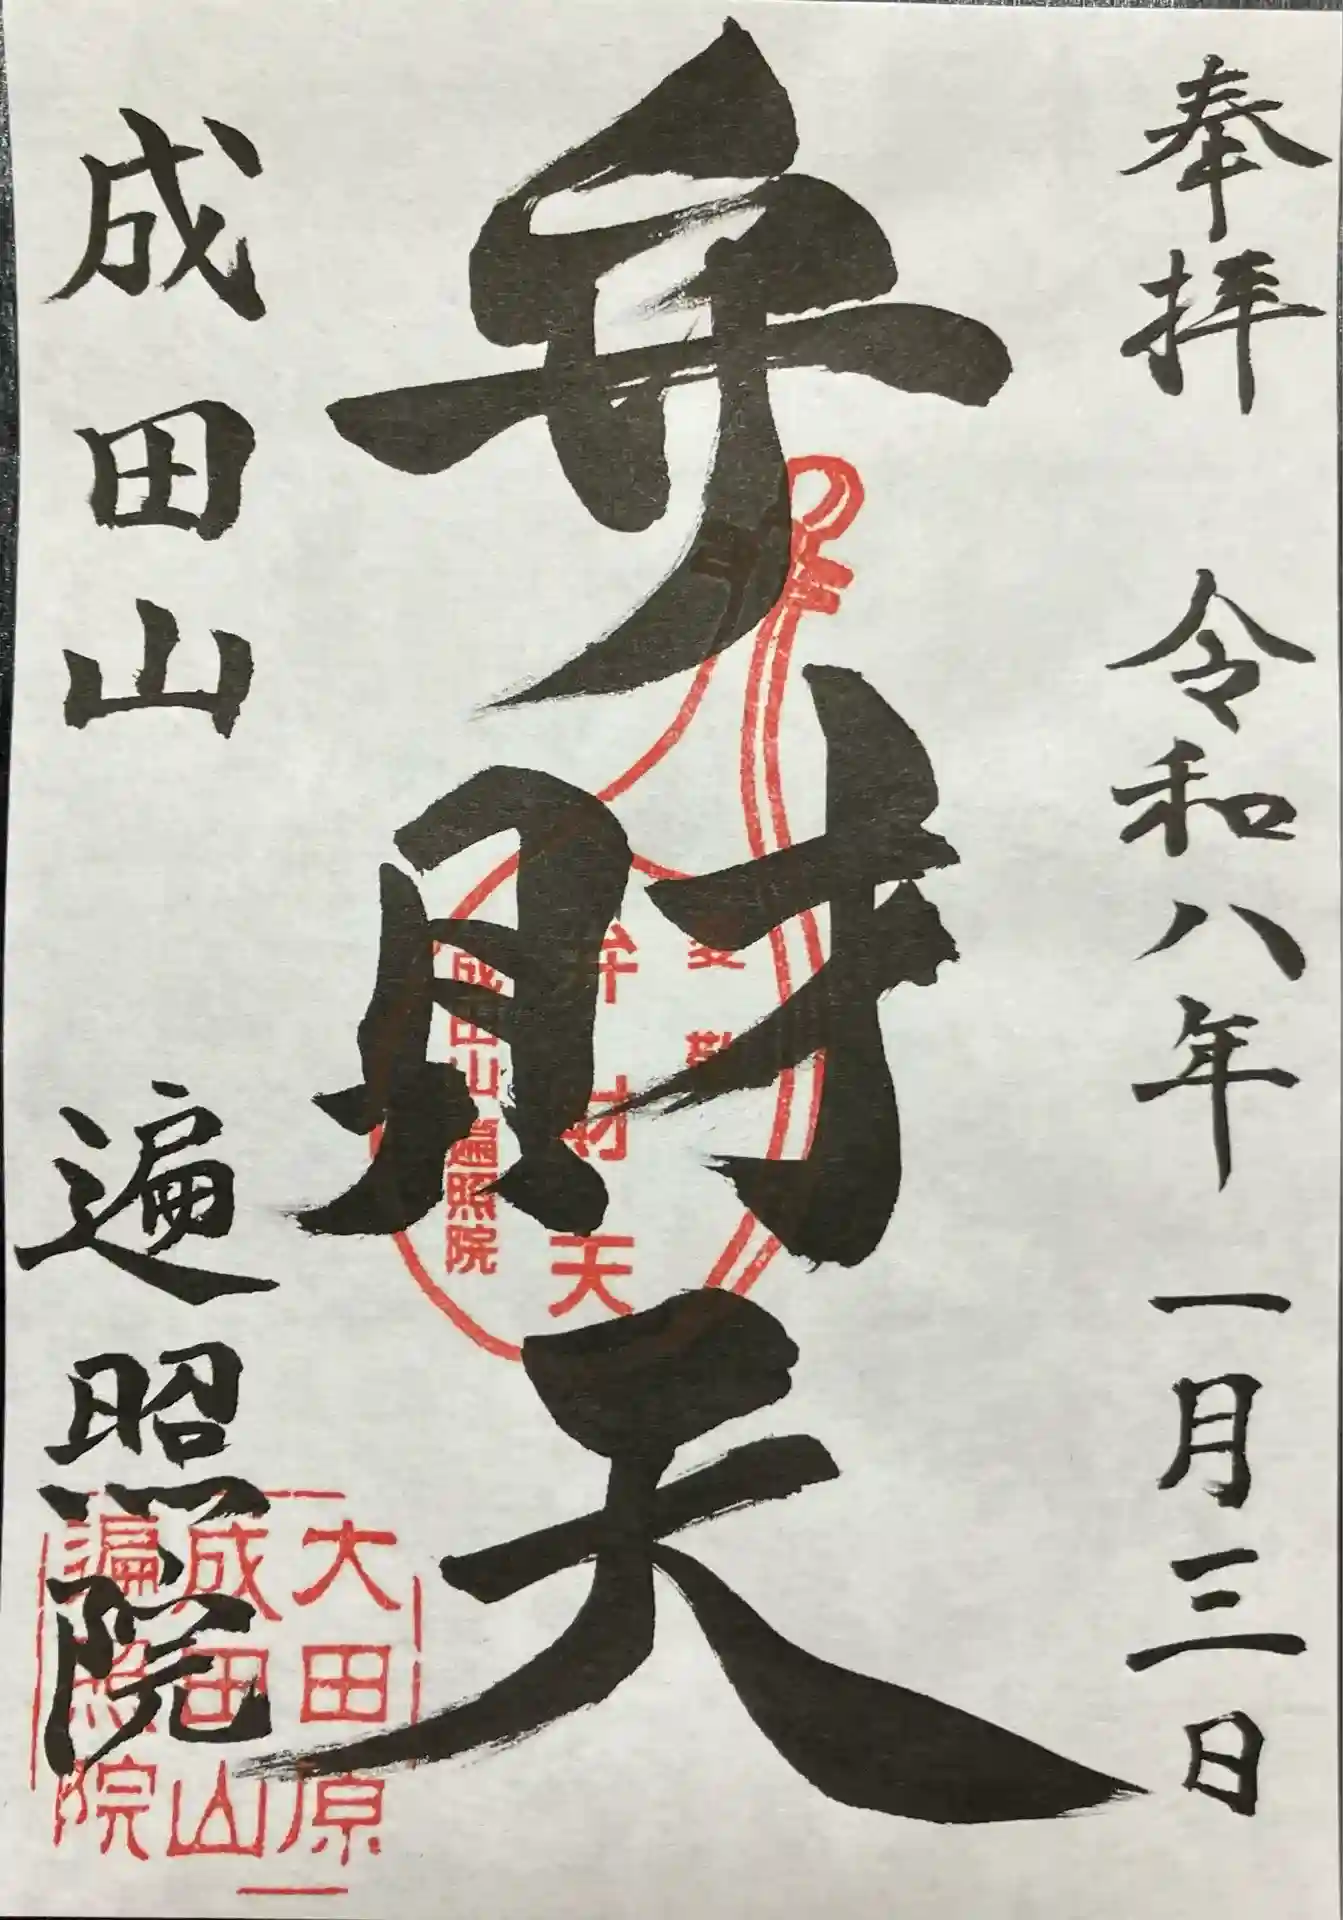 奉拝 令和八年 一月三日
弁財天
成田山 遍照院
愛敬
弁財天
成田山遍照院
大田原
成田山
遍照院